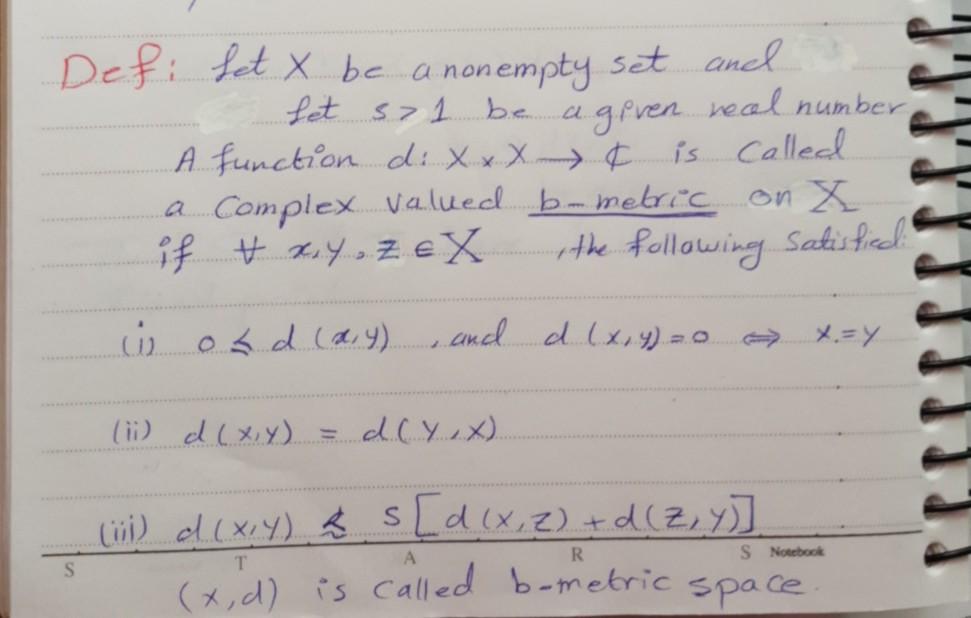 Def: Let X be a nonempty set and
Let s > 1 be a given real number
A function d: X × X → ₵ is called
a complex valued b-metric on X
if ∀ x, y, z ∈ X , the following satisfied:
(i) 0 ≲ d(x,y) , and d(x,y)=0 ⇔ x=y
(ii) d(x,y) = d(y,x)
(iii) d(x,y) ≲ s[d(x,z) + d(z,y)]
S T A R S Notebook
(x,d) is called b-metric space.